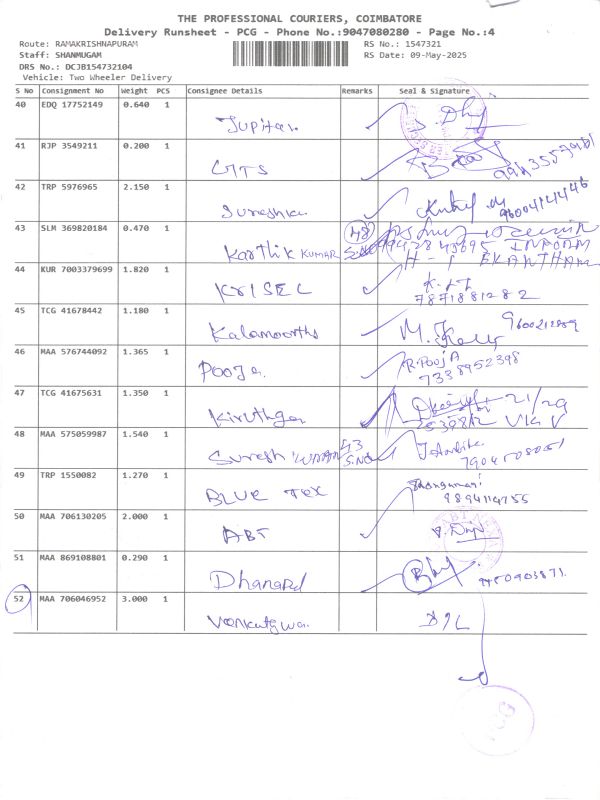 THE PROFESSIONAL COURIERS, COIMBATORE
Delivery Runsheet - PCG - Phone No.:9047080280 - Page No.:4
Route: RAMAKRISHNAPURAM
RS No.: 1547321
Staff: SHANMUGAM
RS Date: 09-May-2025
DRS No.: DCJB154732104
Vehicle: Two Wheeler Delivery
S No Consignment No Weight PCS Consignee Details Remarks Seal & Signature
40 EDQ 17752149 0.640 1 Jupitar
41 RJP 3549211 0.200 1
42 TRP 5976965 2.150 1 9600414446
43 SLM 369820184 0.470 1 Karthik KUMAR 48 S.No INFORM
H - 1 EKANTHAM
44 KUR 7003379699 1.820 1 KRISEL
7871881282
45 TCG 41678442 1.180 1 Kalamoorths M.
46 MAA 576744092 1.365 1 Pooja R.POOJA
7338952398
47 TCG 41675631 1.350 1 Kiruthga 21/29
48 MAA 575059987 1.540 1 Suresh 43 S.No
49 TRP 1550082 1.270 1 BLUE Tex
9894114755
50 MAA 706130205 2.000 1 ABT
51 MAA 869108801 0.290 1 Dhanapd
52 MAA 706046952 3.000 1 D/L
PCG